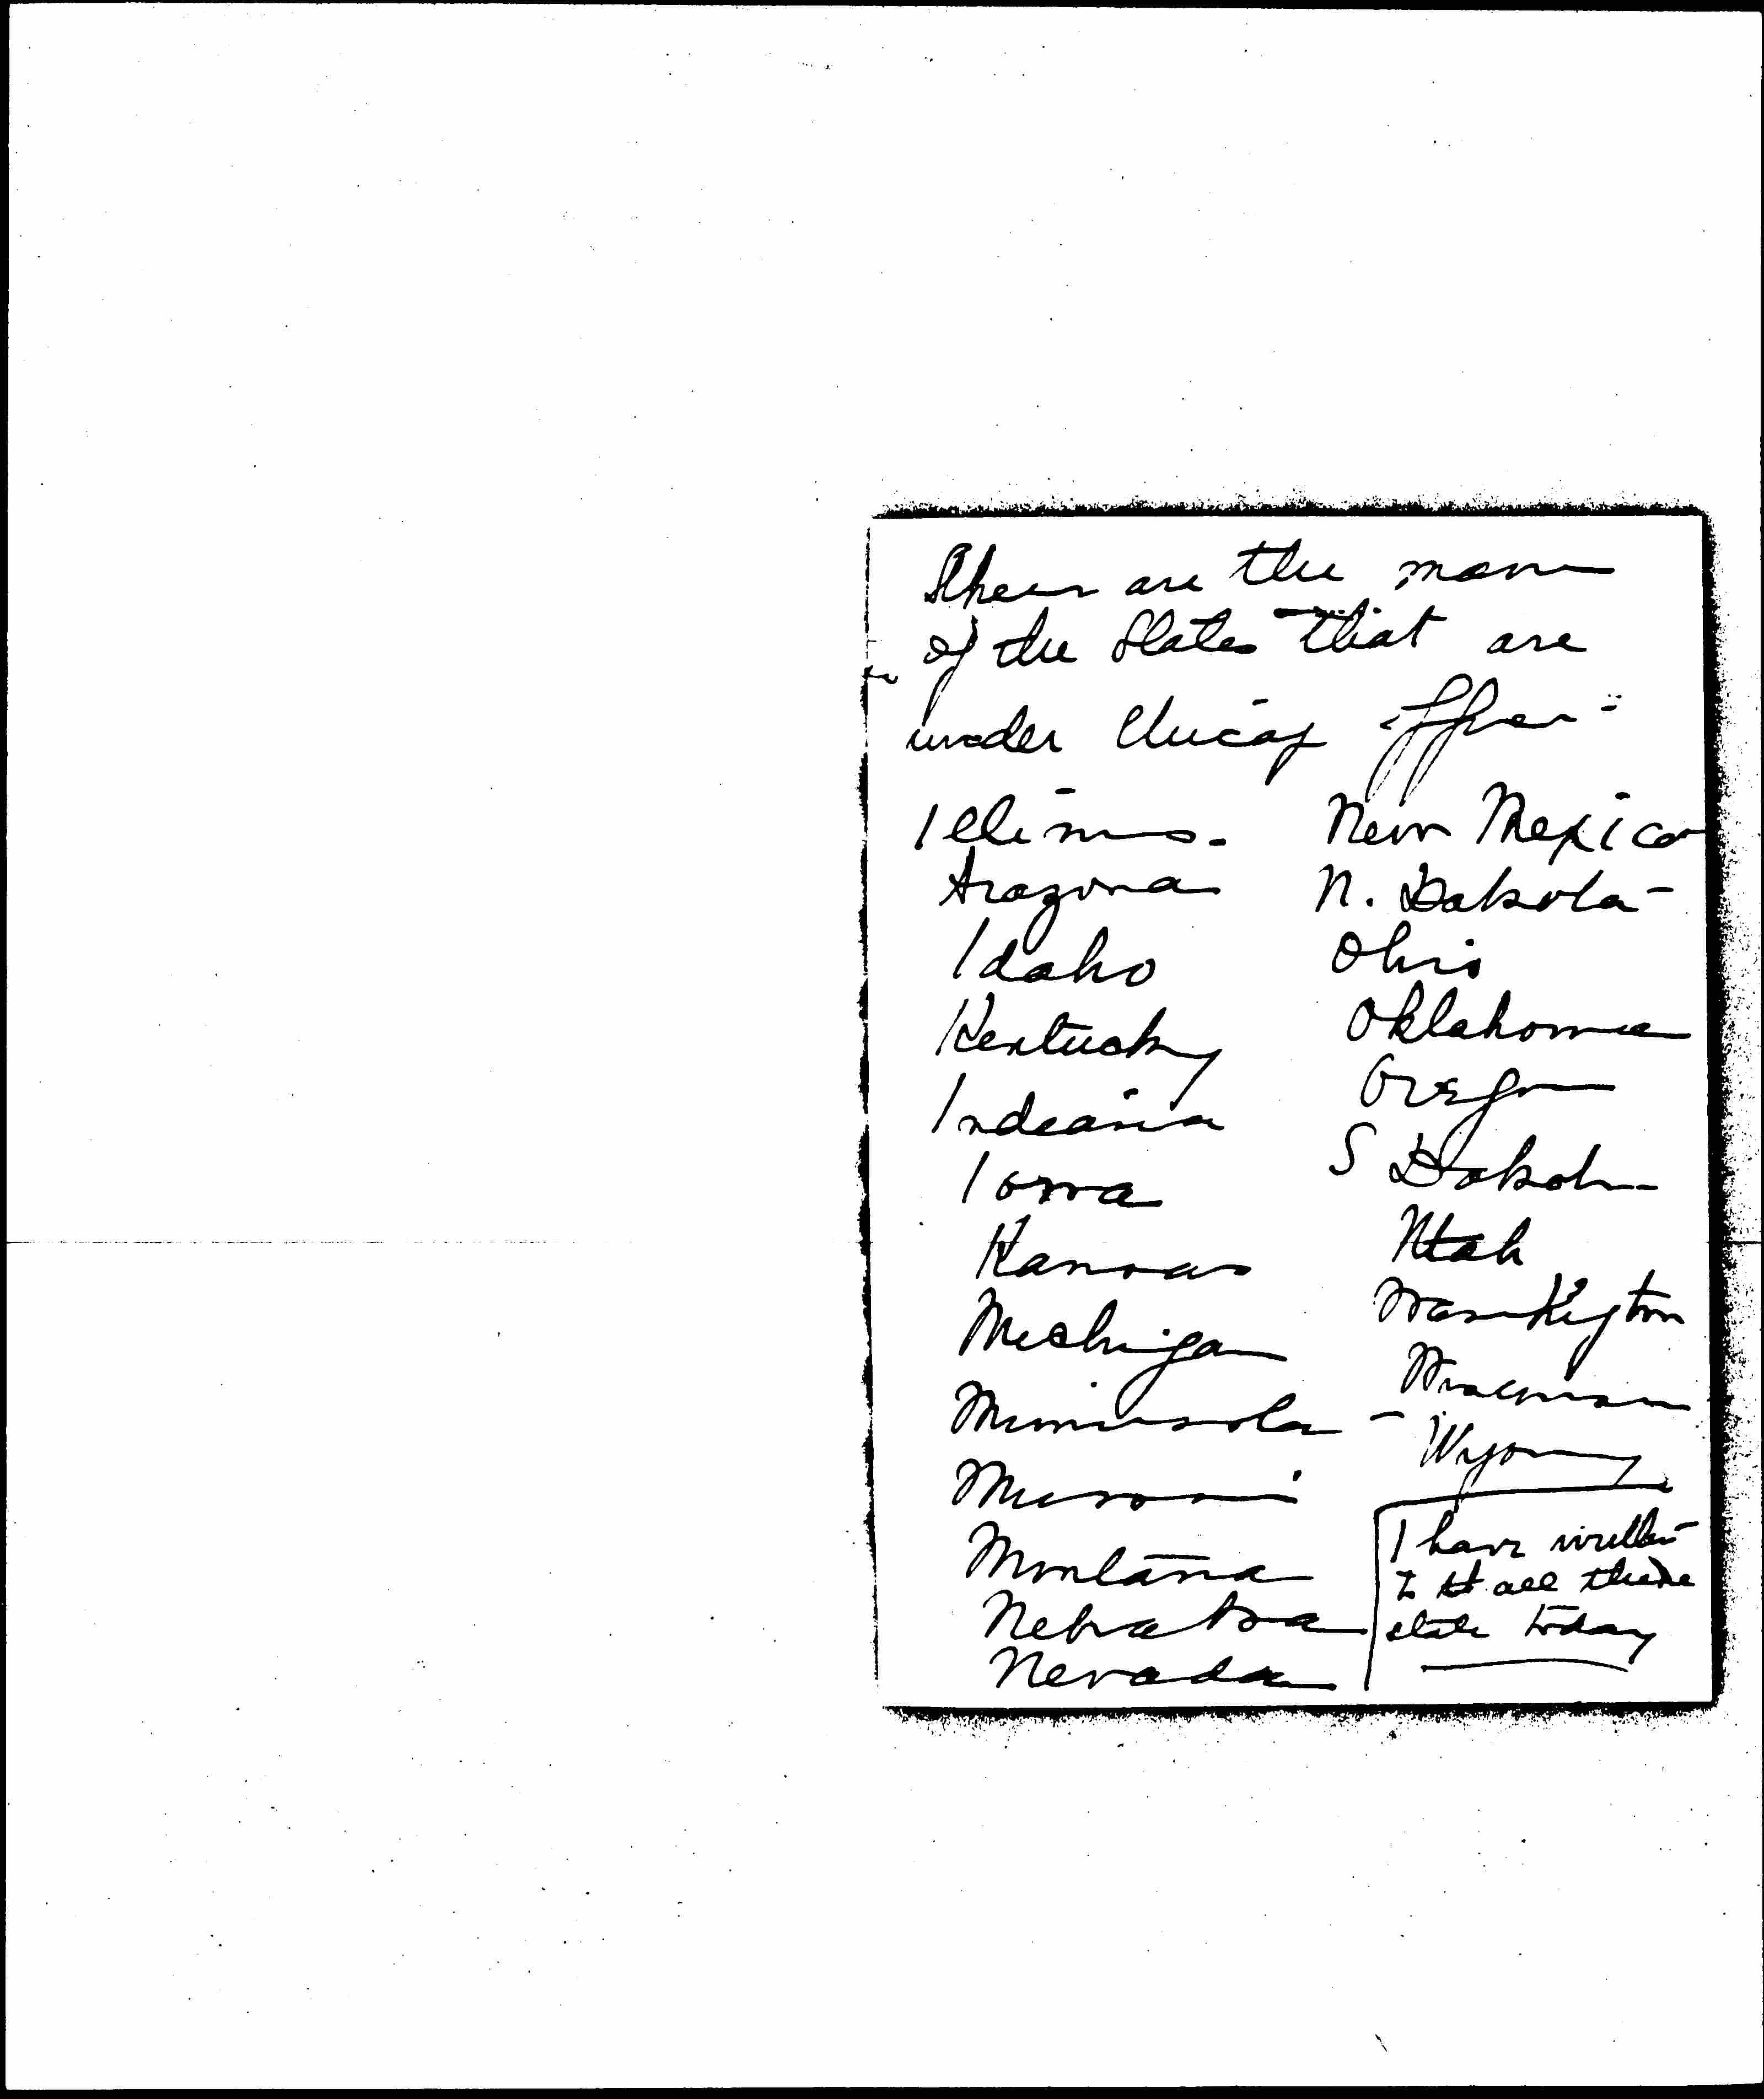 These are the name
of the States that are
under Chicag office
Illinois.
Arazona
Idaho
Kentucky
Indeana
Iowa
Kansas
Michigan
Minnesota
Missouri
Montana
Nebraska
Nevada
New Mexico
N. Dakota
Ohio
Oklahoma
Oregon
S Dakota
Utah
Washington
Wisconsin
Wyoming
I have written
to all these
state today